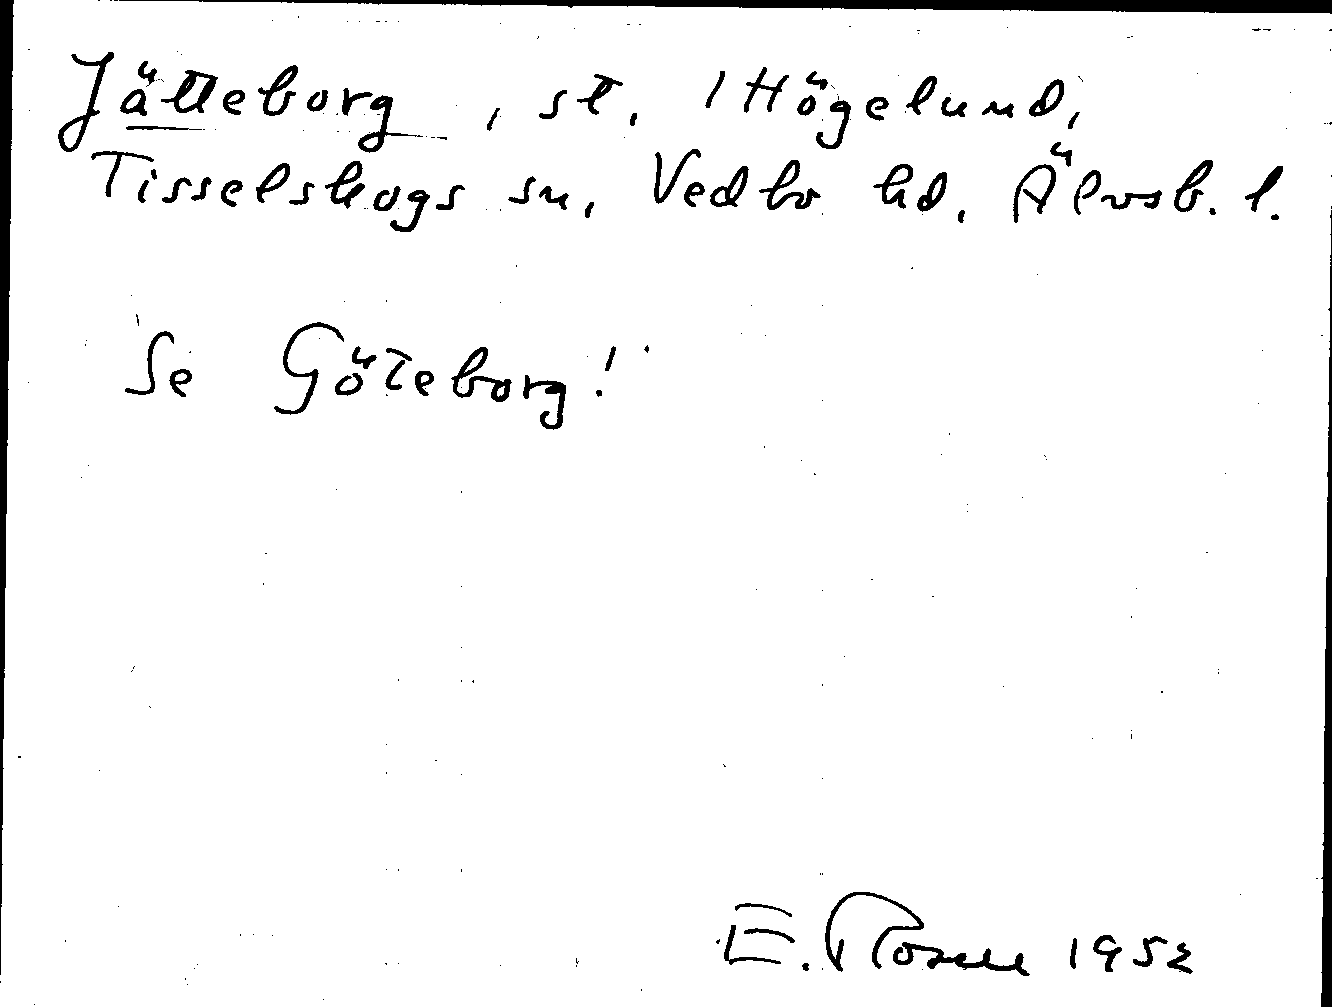 Jätteborg, st. 1 Högelund,
Tisselskogs sn, Vedbo hd, Älvsb. l.
Se Göteborg!
E. Rosell 1952